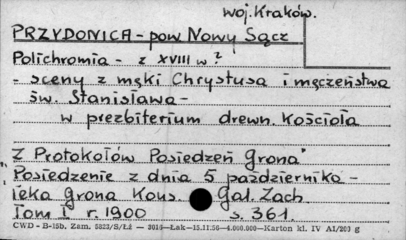 woj. Kraków.
PRZYDONICA - pow Nowy Sącz
Polichromia - z XVIII w ?
- sceny z męki Chrystusa i męczeństwa
św. Stanisława -
w prezbiterium drewn. Kościoła
"Z Protokołów Posiedzeń Grona"
Posiedzenie z dnia 5 październi-
ka Grona Kons. Gal. Zach.
Tom I r. 1900 s. 361.
CWD - B-15b. Zam. 5823/S/Łż — 2016—Łak—15.11.56—4.000.000—Karton kl. IV A1/203 g